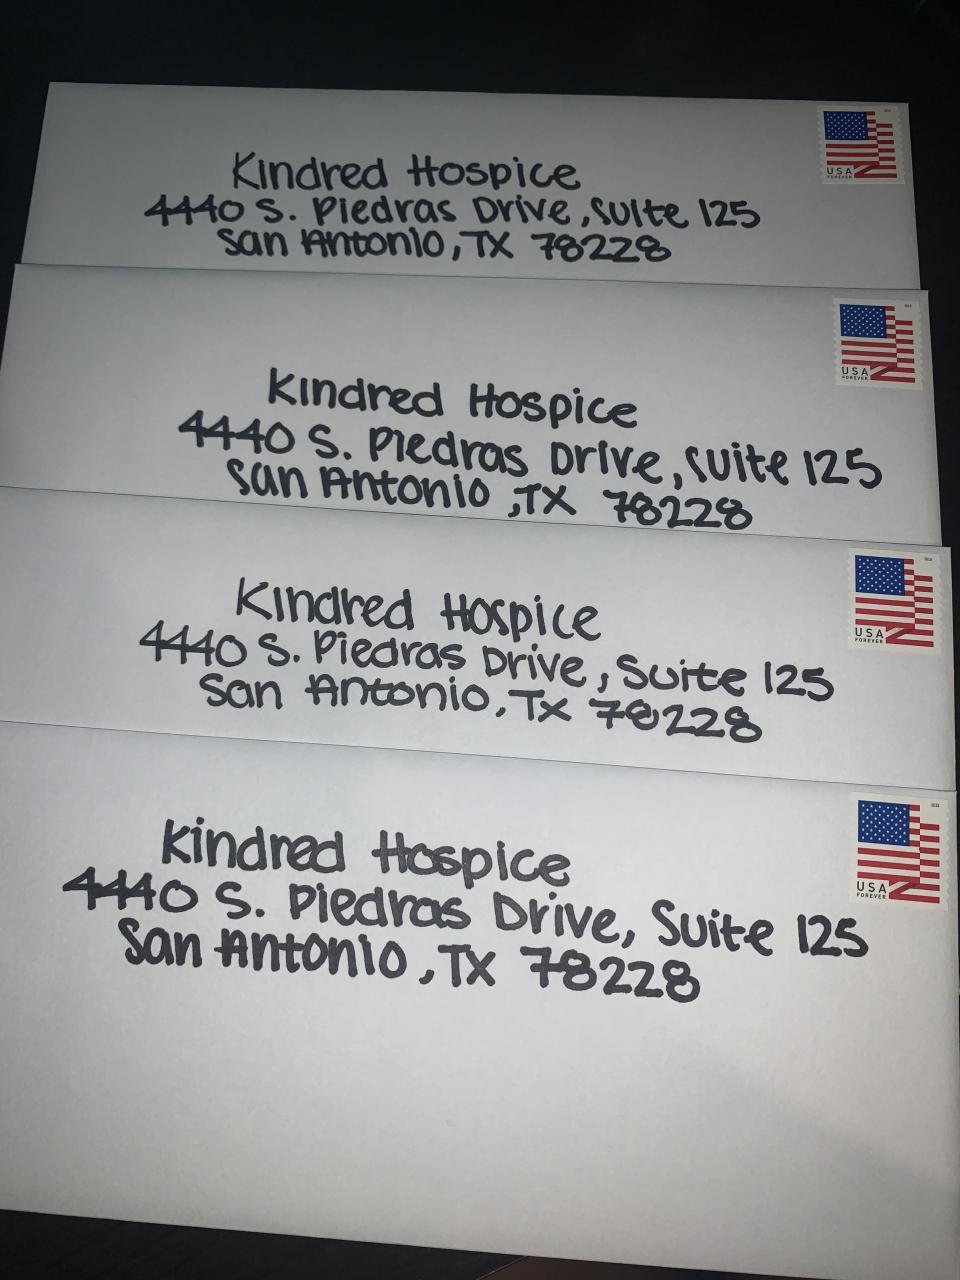 Kindred Hospice
4440 S. Piedras Drive, Suite 125
San Antonio, TX 78228
USA
FOREVER
Kindred Hospice
4440 S. Piedras Drive, Suite 125
San Antonio, TX 78228
USA
FOREVER
Kindred Hospice
4440 S. Piedras Drive, Suite 125
San Antonio, TX 78228
USA
FOREVER
Kindred Hospice
4440 S. Piedras Drive, Suite 125
San Antonio, TX 78228
USA
FOREVER